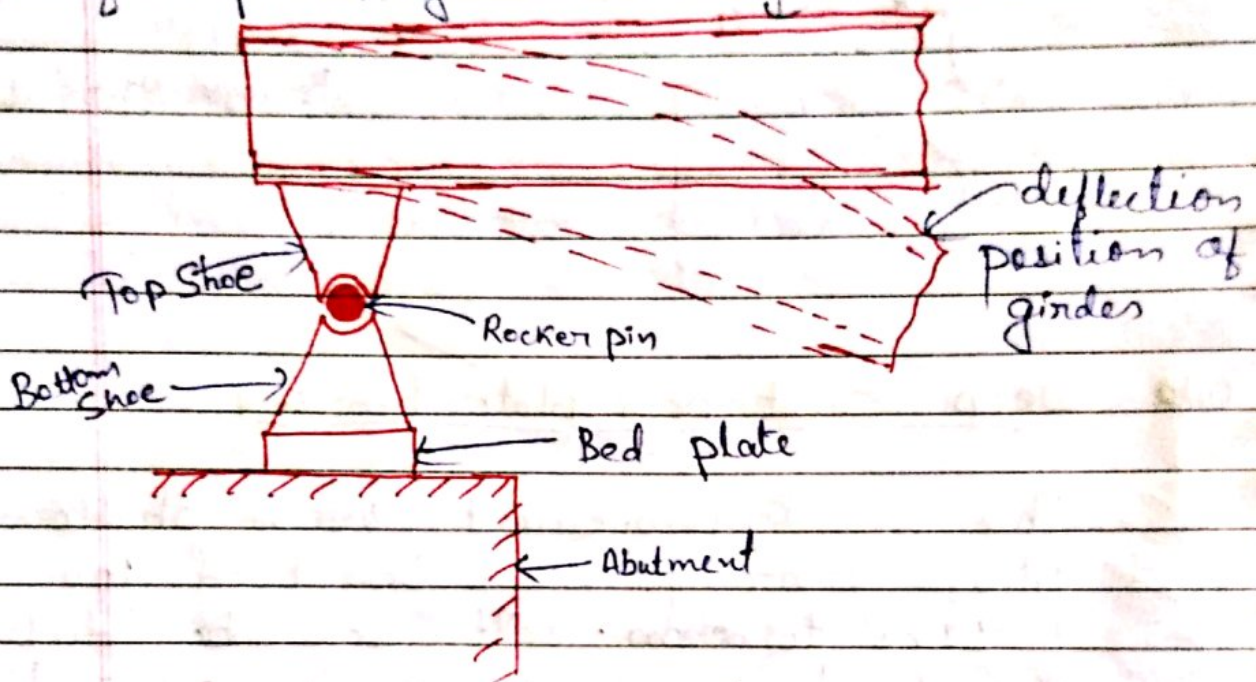 deflection
position of
girder
Top Shoe
Rocker pin
Bottom
Shoe
Bed plate
Abutment